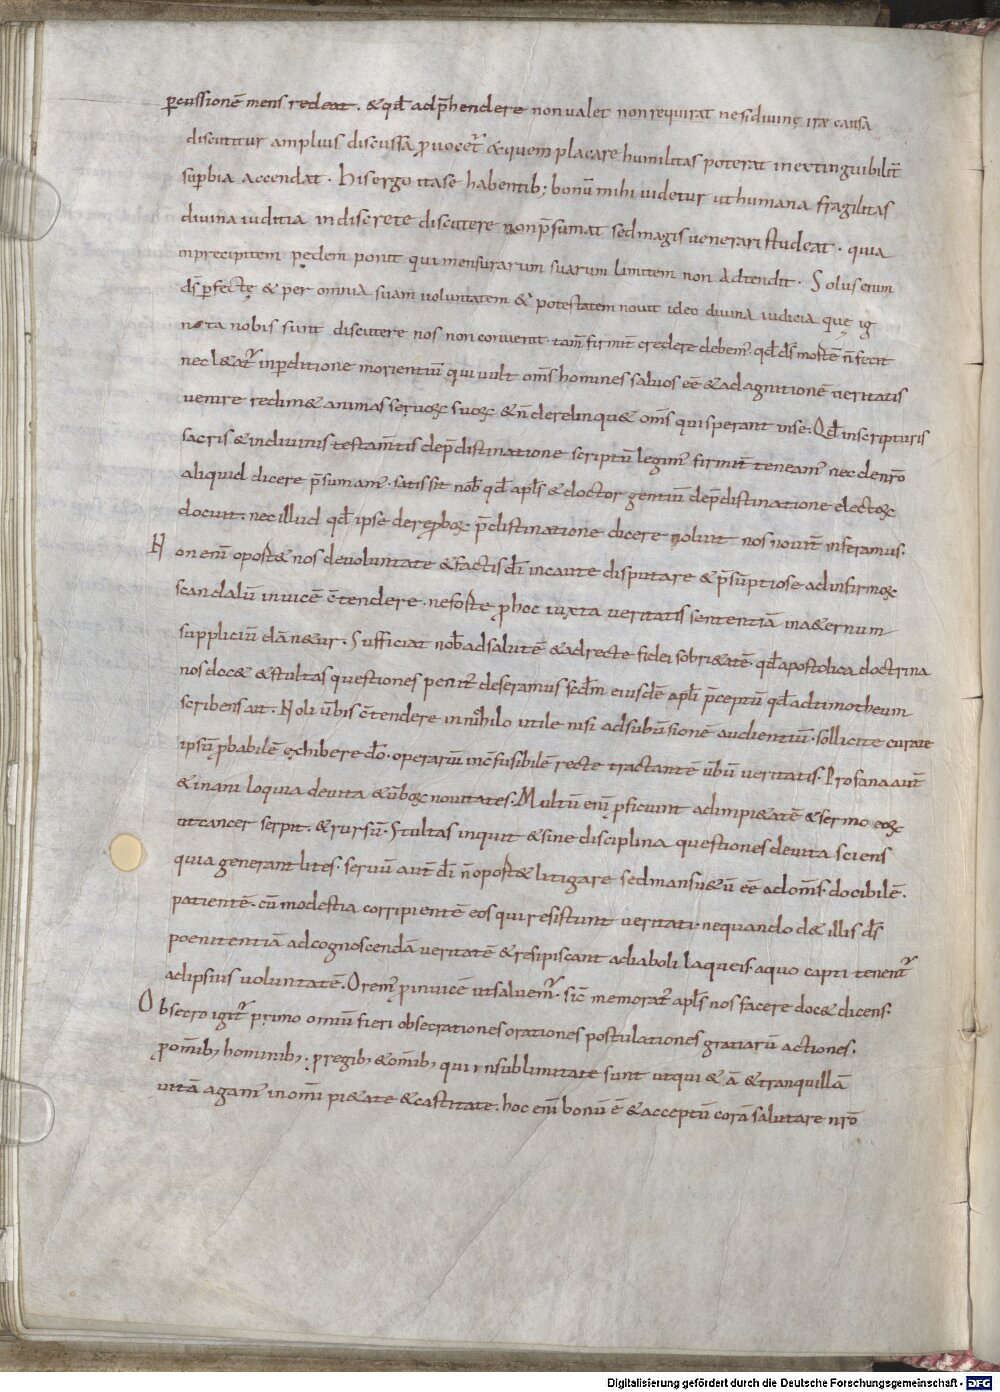 p̱cussionē mens redeat . &qđ adp̄hendere nonualet nonrequirat nesidiuinę irae causa
discutitur amplius discussā ꝓuocet᷑ & quem placare humilitas poterat inextinguibilit̄
sup̱bia accendat . His ergo itase habentib; bonū mihi uidetur uthumana fragilitas
diuina iuditia indiscrete discutere nonp̄sumat sedmagis uenerari studeat . quia
inprecipitem pedem ponit qui mensurarum suarum limitem non adtendit . Solus enim
d̄s p̱fectę & per omnia suam uoluntatem & potestatem nouit ideo diuina iudicia quę ig
nota nobis sunt discutere nos non conuenit . tam̄ firmit̄ credere debem᷒ . qđ d̄s mortē n̄ fecit
nec l&at᷑ inp̱ditione morientiū qui uult om̄s homines saluos eē & ad agnitionē ueritatis
uenire redim& animas seruoꝝ suoꝝ & n̄ derelinqu& om̄s qui sperant in se . Qđ inscripturis
sacris & indiuinis testam̄tis dep̄distinatione scriptū legim᷒ firmit̄ teneam᷒ nec denr̄o
aliquid dicere p̄sumam᷒ . satis sit nob̄ qđ apl̄s & doctor gentiū dep̄distinatione electoꝝ
docuit . nec illud qđ ipse dereꝓboꝝ p̄distinatione dicere noluit nos nouit̄ inferamus .
Non enī oport& nos deuoluntate & factis dī incaute disputare & p̄sūptiose ad infirmoꝝ
scandalū inuicē c̄tendere . neforte ꝓ hoc iuxta ueritatis sententiā in a&ernum
suppliciū dān&ur . Sufficiat nob̄ ad salutē & adrecte fidei sobri&atē . qđ apostolica doctrina
nos doc& & stultas questiones penit᷒ deseramus scd̄m eiusdē apl̄i p̄ceptū qđ ad timotheum
scribens ait . Noli ūbis c̄tendere in nihilo utile nisi ad subūsionē audientiū . sollicite curate
ipsū ꝓbabilē exhibere dō . operariū inc̄fusibilē recte tractantē ūbū ueritatis . Profana aūt
& inani loquia deuita & ūboꝝ nouitates . Multū enī ꝓficiunt ad impi&atē & sermo eoꝝ
ut cancer serpit . & rursū . Stultas inquit & sine disciplina questiones deuita sciens
quia generant lites . seruū aūt dī n̄ oport& litigare sed mansu&ū eē ad om̄s . docibilē .
patientē . cū modestia corripientē eos qui resistunt ueritati nequando d& illis d̄s
poenitentiā ad cognoscendā ueritatē & resipiscant a diaboli laqueis . a quo capti tenent᷑
ad ipsius uoluntatē . Orem᷒ ꝓ inuicē ut saluem᷑ . sic̄ memorat᷒ apl̄s nos facere doc& dicens .
Obsecro igit᷑ primo omiū fieri obsecrationes orationes postulationes gratiarū actiones .
ꝓ om̄ib; hominib; . ꝓ regib; & om̄ib; qui insublimitate sunt ut qui&ā & tranquillā
uitā agam᷒ in om̄i pi&ate & castitate . hoc enī bonū ē & acceptū corā salutare nr̄o
Digitalisierung gefördert durch die Deutsche Forschungsgemeinschaft - DFG